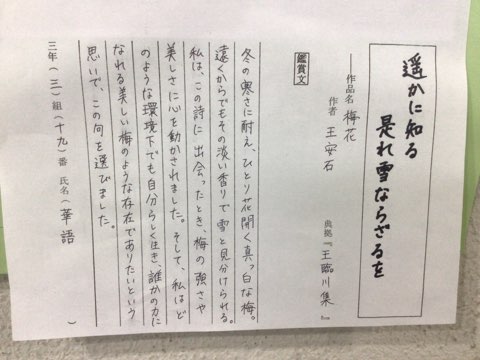 遥かに知る
是れ雪ならざるを
作品名 梅花
作者 王安石
典拠『王臨川集』
鑑賞文
冬の寒さに耐え、ひとり花開く真っ白な梅。
遠くからでもその淡い香りで雪と見分けられる。
私は、この詩に出会ったとき、梅の強さや
美しさに心を動かされました。そして、私はど
のような環境下でも自分らしく生き、誰かの力に
なれる美しい梅のような存在でありたいという
思いで、この句を選びました。
三年(三)組(十九)番 氏名(華語)